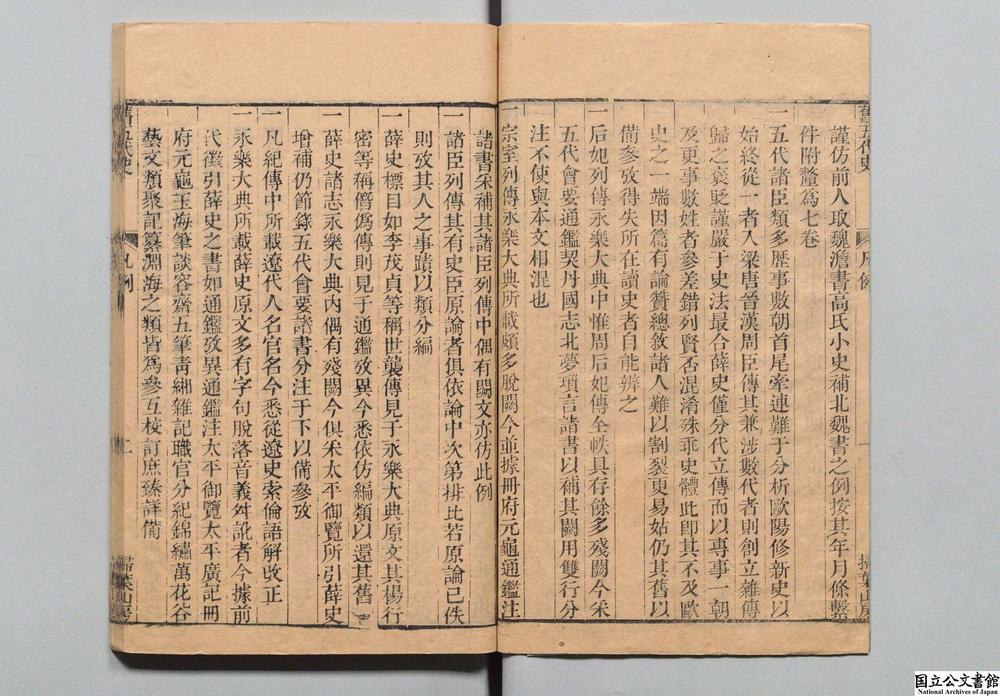 舊五代史 凡例 一 掃葉山房
謹仿前人取魏澹書高氏小史補北魏書之例按其年月條繫
件附釐爲七卷
一五代諸臣類多歷事數朝首尾牽連難于分析歐陽修新史以
始終從一者入梁唐晉漢周臣傳其兼涉數代者則創立雜傳
歸之褒貶謹嚴于史法最合薛史僅分代立傳而以專事一朝
及更事數姓者參差錯列賢否混淆殊乖史體此卽其不及歐
史之一端因篇有論贊總敘諸人難以割裂更易姑仍其舊以
備參攷得失所在讀史者自能辨之
一后妃列傳永樂大典中惟周后妃傳全帙具存餘多殘闕今采
五代會要通鑑契丹國志北夢瑣言諸書以補其闕用雙行分
注不使與本文相混也
一宗室列傳永樂大典所載頗多脫闕今並據冊府元龜通鑑注
諸書采補其諸臣列傳中偶有闕文亦仿此例
一諸臣列傳其有史臣原論者俱依論中次第排比若原論已佚
則攷其人之事蹟以類分編
一薛史標目如李茂貞等稱世襲傳見于永樂大典原文其楊行
密等稱僭僞傳則見于通鑑攷異今悉依仿編類以還其舊
一薛史諸志永樂大典內偶有殘闕今俱采太平御覽所引薛史
增補仍節錄五代會要諸書分注于下以備參攷
一凡紀傳中所載遼代人名官名今悉從遼史索倫語解改正
一永樂大典所載薛史原文多有字句脫落音義舛訛者今據前
代徵引薛史之書如通鑑攷異通鑑注太平御覽太平廣記冊
府元龜玉海筆談容齋五筆靑緗雜記職官分紀錦繡萬花谷
藝文類聚記纂淵海之類皆爲參互校訂庶臻詳備
舊五代史 凡例 二 掃葉山房
国立公文書館
National Archives of Japan